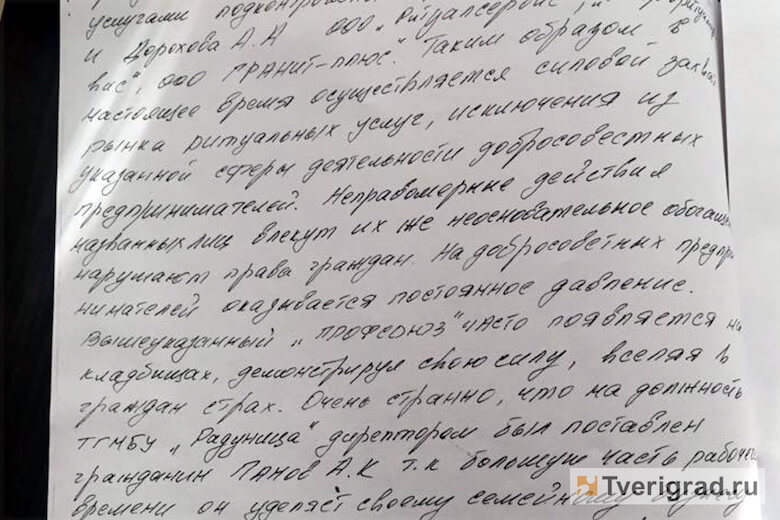 услугами подконтрольн
и Дорохова А.А ООО "Ритуалсервис",
вис", ООО "ГРАНИТ-ПЛЮС". Таким образом в
настоящее время осуществляется силовой захват
рынка ритуальных услуг, исключения из
указанной сферы деятельности добросовестных
предпринимателей. Неправомерные действия
названных лиц влекут их же неосновательное обогащ
нарушают права граждан. На добросоветных предпри
нимателей оказывается постоянное давление.
Вышеуказанный "ПРОФСОЮЗ" часто появляется на
кладбищах, демонстрируя свою силу, вселяя в
граждан страх. Очень странно, что на должность
ТГМБУ "Радуница" директором был поставлен
гражданин Панов А.К т.к большую часть рабочего
времени он уделяет своему семейному
Tverigrad.ru